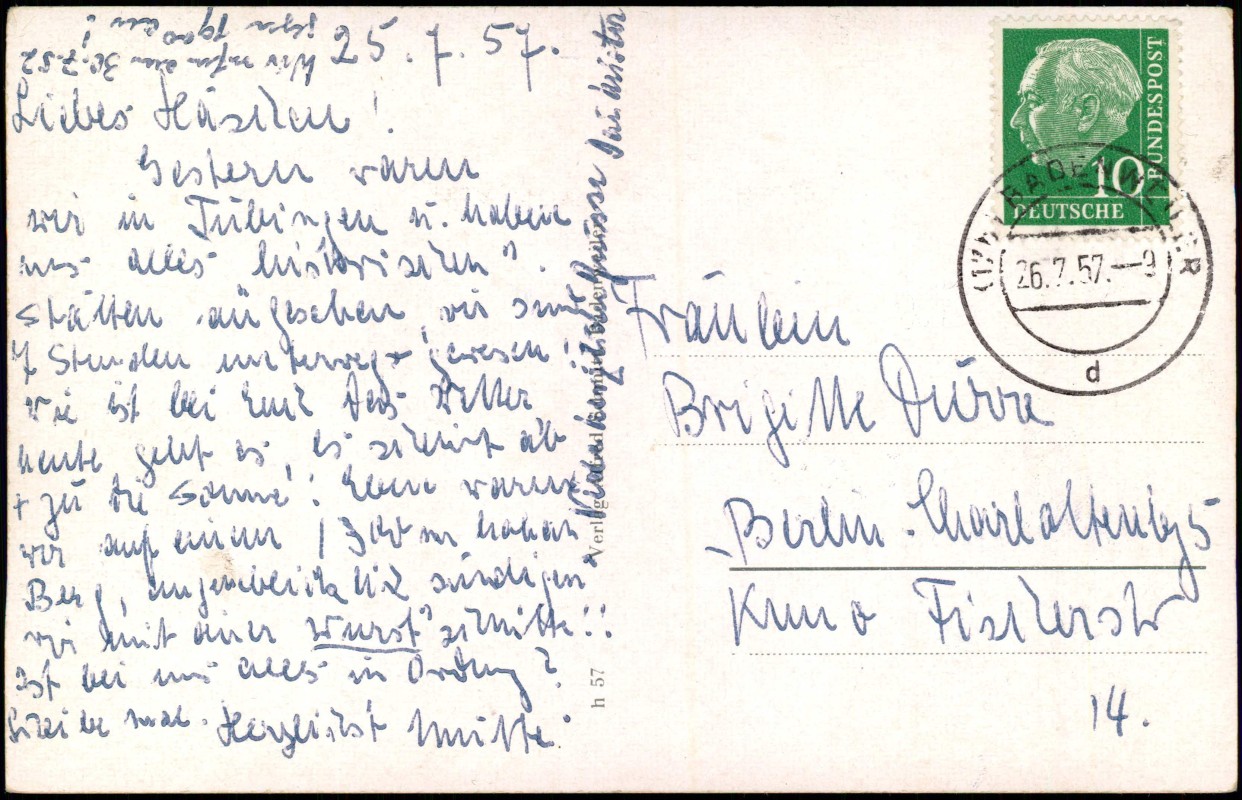 25.7.57.
Liebes Häschen!
Gestern waren
wir in Tübingen u. haben
uns alles historischen
Stätten angesehen, wir sind
7 Stunden unterwegs gewesen!
Wie ist bei Euch das Wetter
heute geht es, es scheint ab
+ zu die Sonne! Eben waren
wir auf einem hohen
Berg, augenblicklich sündigen
wir mit einer Wurstschnitte!!
Ist bei uns alles in Ordnung?
Schreibe mal. Herzlichst Mutti.
Wir rufen am 30.7.57
gegen 1900 an!
Grüsse
h 57
10
DEUTSCHE
BUNDESPOST
26.7.57.--9
d
Fräulein
Brigitte Dürre
Berlin-Charlottenbg 5
Kuno Fischerstr
14.